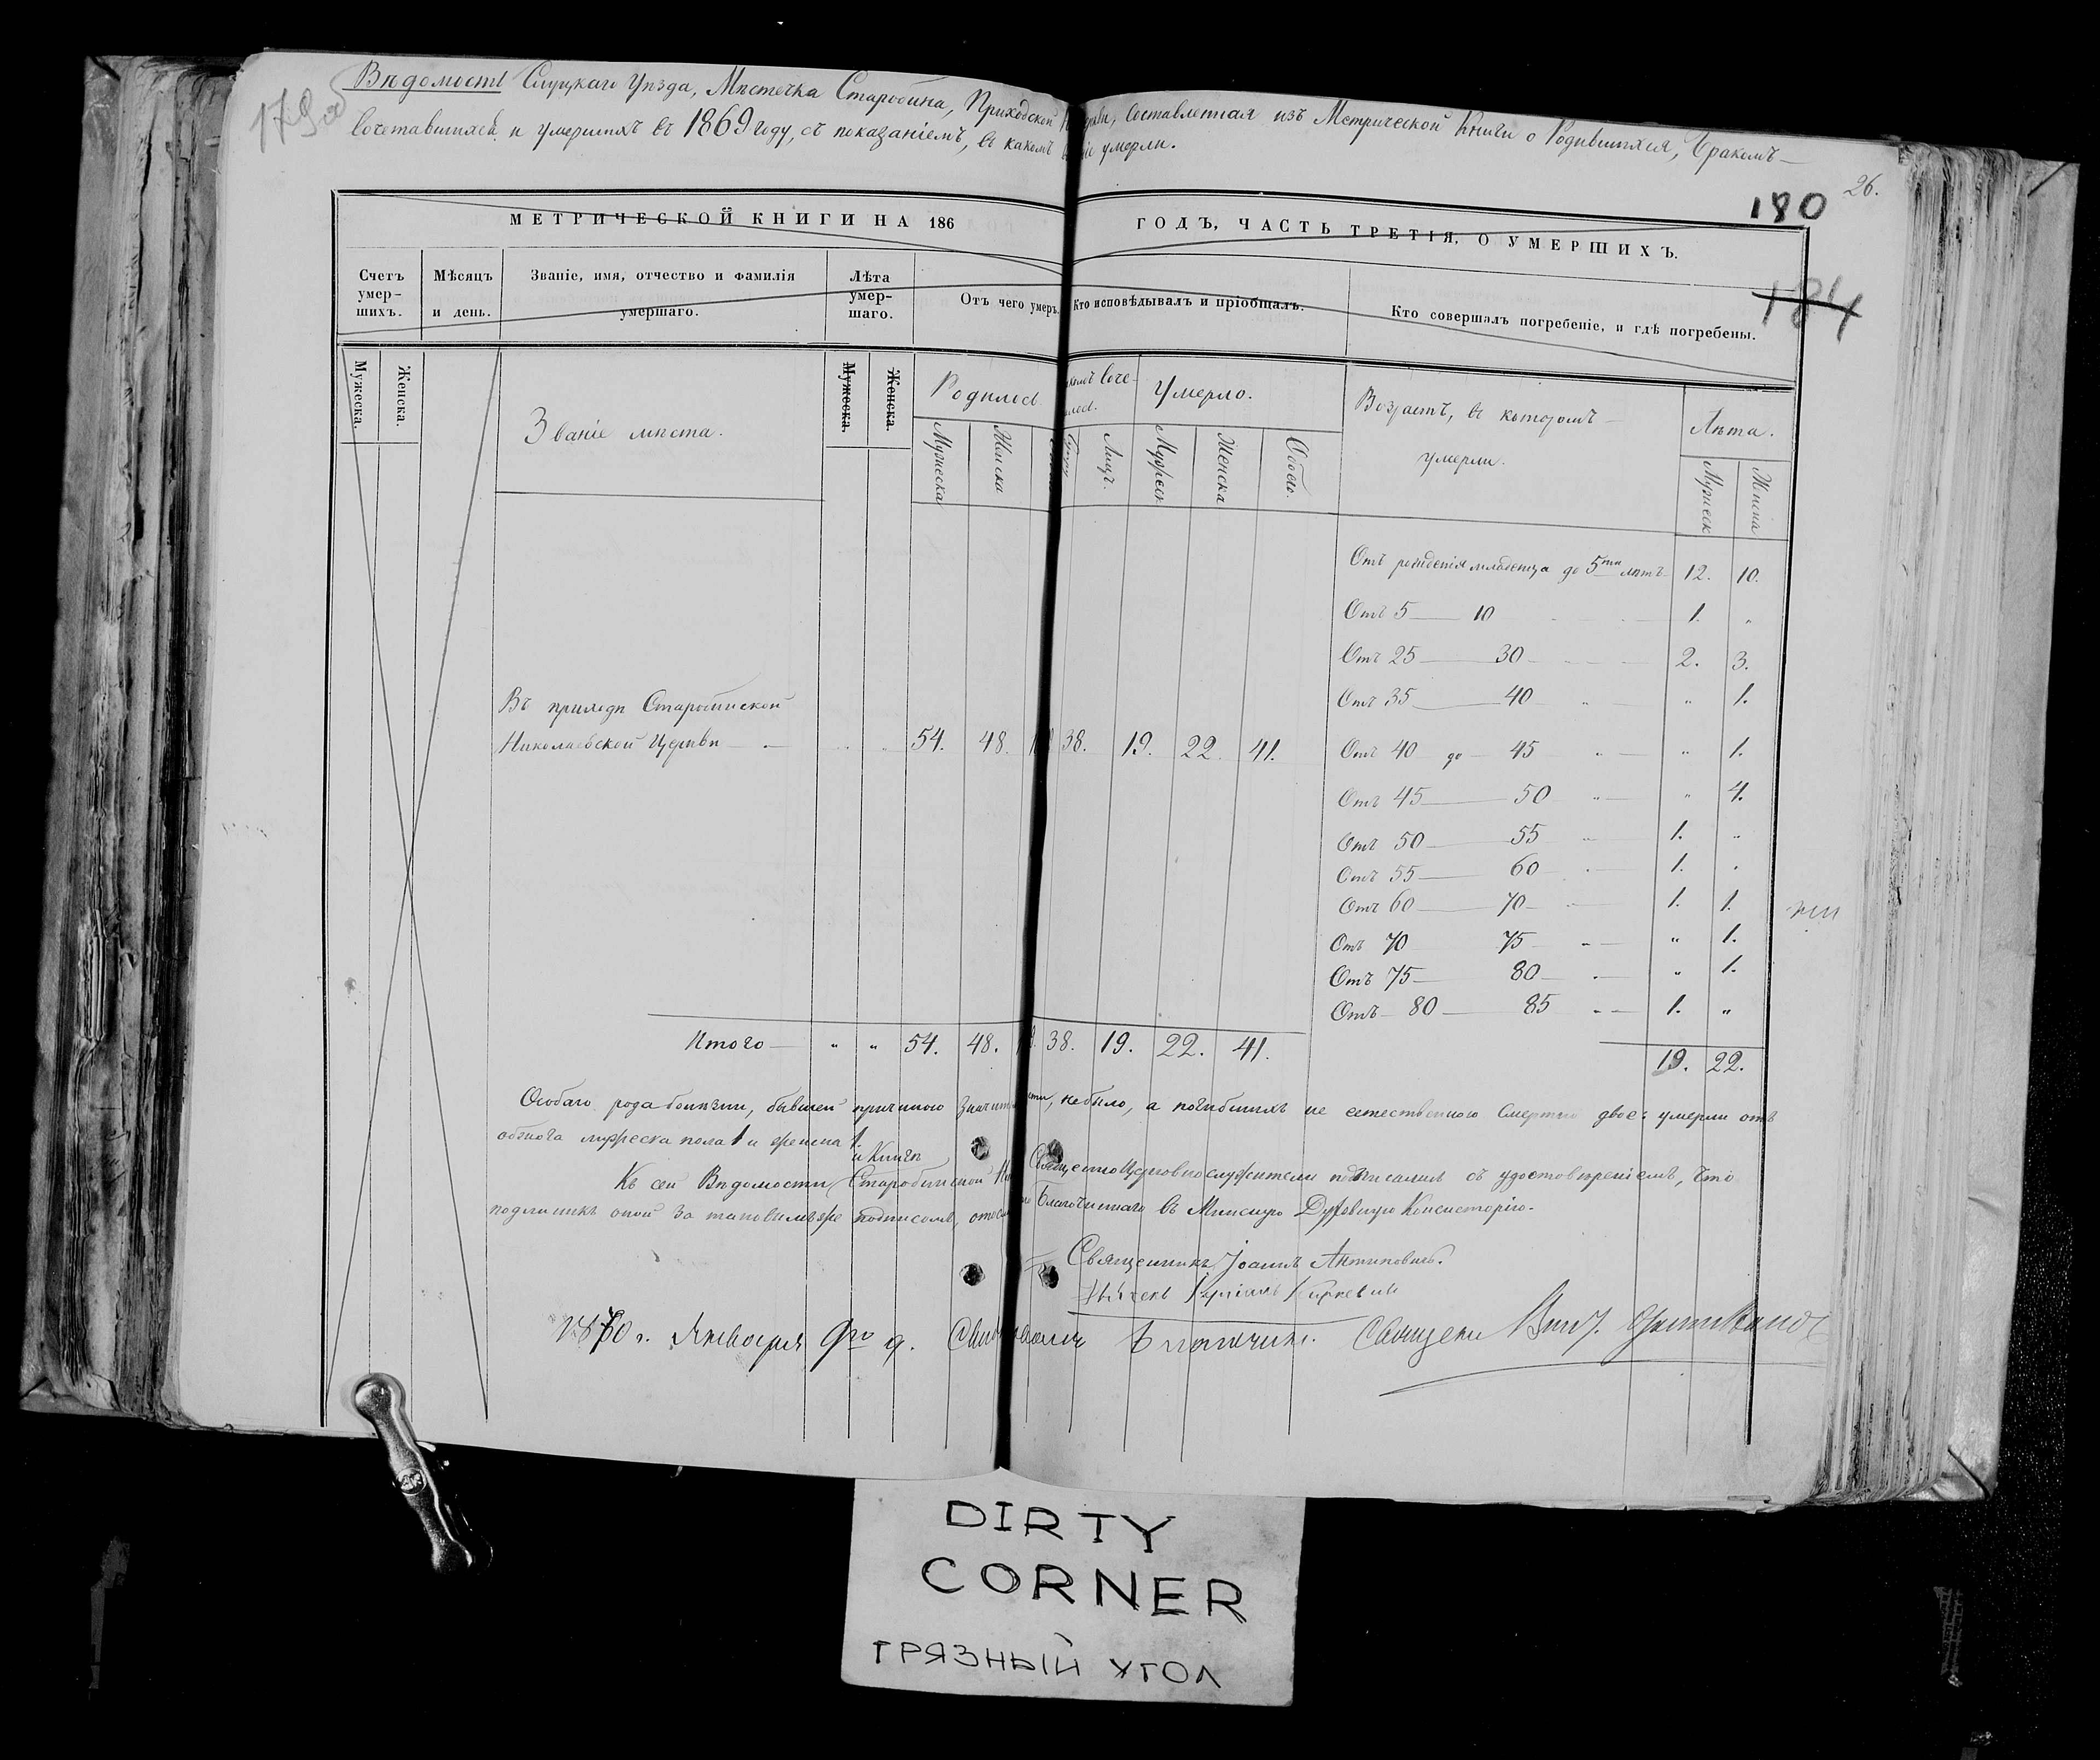 179об
Вѣдомость Слуцкаго Уѣзда, Мѣстечка Старобина, Приходской Церкви, Составленная изъ Метрической Книги о Родившихся, Бракомъ—
Сочетавшихся и умершихъ въ 1869 году, съ показаніемъ, въ какомъ умерли.
26.
180
184
МЕТРИЧЕСКОЙ КНИГИ НА 186 ГОДЪ, ЧАСТЬ ТРЕТІЯ, О УМЕРШИХЪ.
Счетъ умер-шихъ.
Мѣсяцъ и день.
Званіе, имя, отчество и фамилія умершаго.
Лѣта умер-шаго.
Отъ чего умеръ.
Кто исповѣдывалъ и пріобщалъ.
Кто совершалъ погребеніе, и гдѣ погребены.
Мужеска. Женска.
Званіе мѣста.
Мужеска. Женска.
Родилось
Соче-
Умерло.
Возрастъ, въ которомъ— умерли.
Лѣта.
Мужеска Женска
Лицъ. Мужеск Женска Обоего.
Мужеск Женска
Отъ рожденія младенца до 5ти лѣтъ 12. 10.
Отъ 5 — 10 1. „
Отъ 25 — 30 2. 3.
Отъ 35 — 40 „ 1.
Въ приходѣ Старобинской
Николаевской Церкви — 54. 48. 38. 19. 22. 41.
Отъ 40 до 45 „ 1.
Отъ 45 — 50 „ 4.
Отъ 50 — 55 1. „
Отъ 55 — 60 1. „
Отъ 60 — 70 1. 1.
Отъ 70 75 „ 1.
Отъ 75 — 80 „ 1.
Отъ 80 — 85 1. „
Итого — „ „ 54. 48. 38. 19. 22. 41.
19. 22.
Особаго рода болѣзни, бывшей причиною небыло, а погибшихъ не естественною Смертію двое: умерли отъ
мужеска пола 1 и женска 1.
и Книгѣ
Къ сей Вѣдомости Старобинской Священноцерковнослужители подписались съ удостовѣреніемъ, что
подлинникъ оной за таковымъ же подписомъ, Благочиннаго въ Минскую Духовную Консисторію.
Священникъ Іоаннъ Антиповичъ.
1870 г. Января 9го д.
DIRTY
CORNER
ГРЯЗНЫЙ УГОЛ